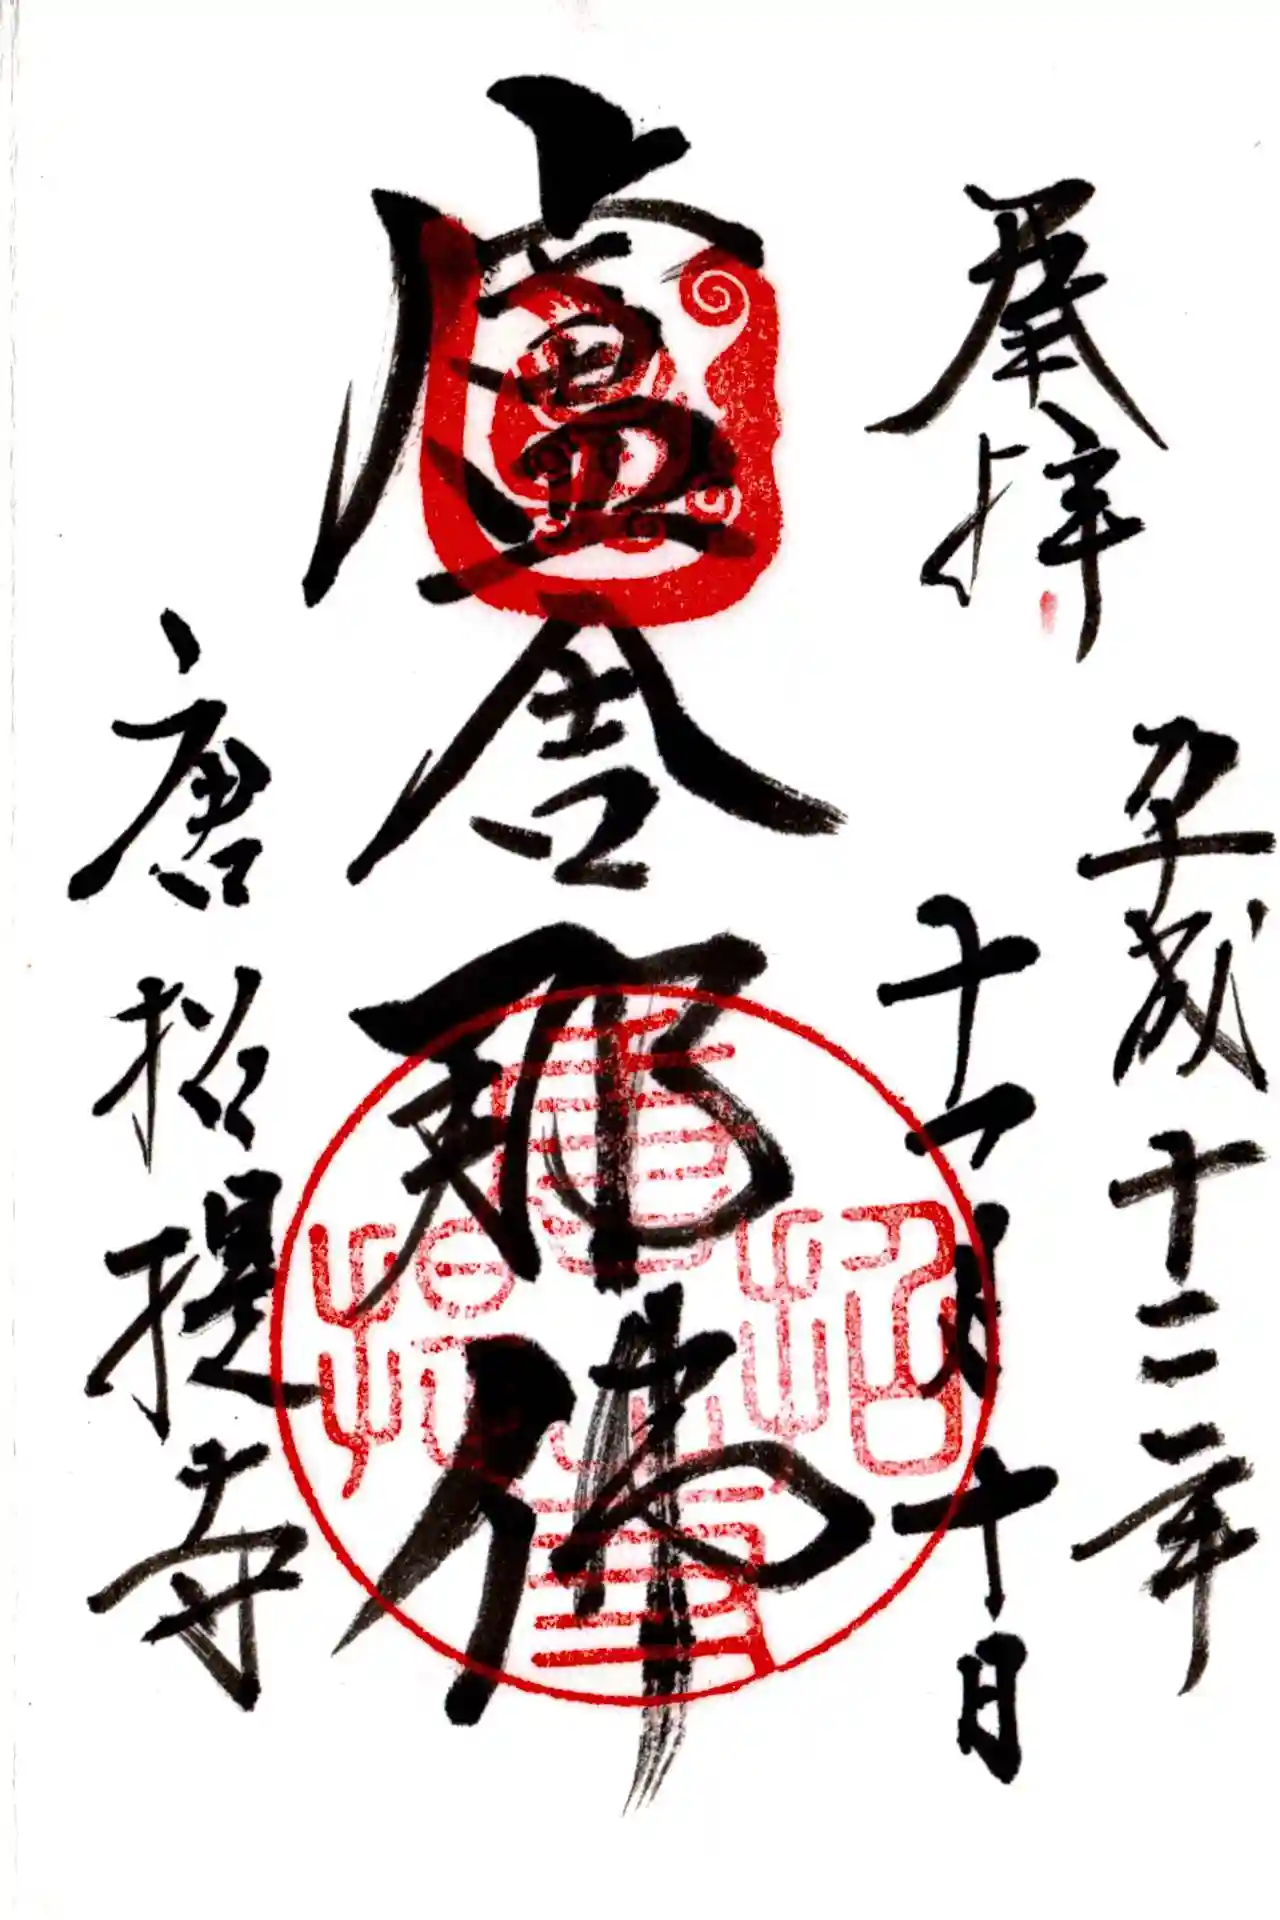 奉拝
平成十二年
十一月十日
盧舎那佛
唐招提寺